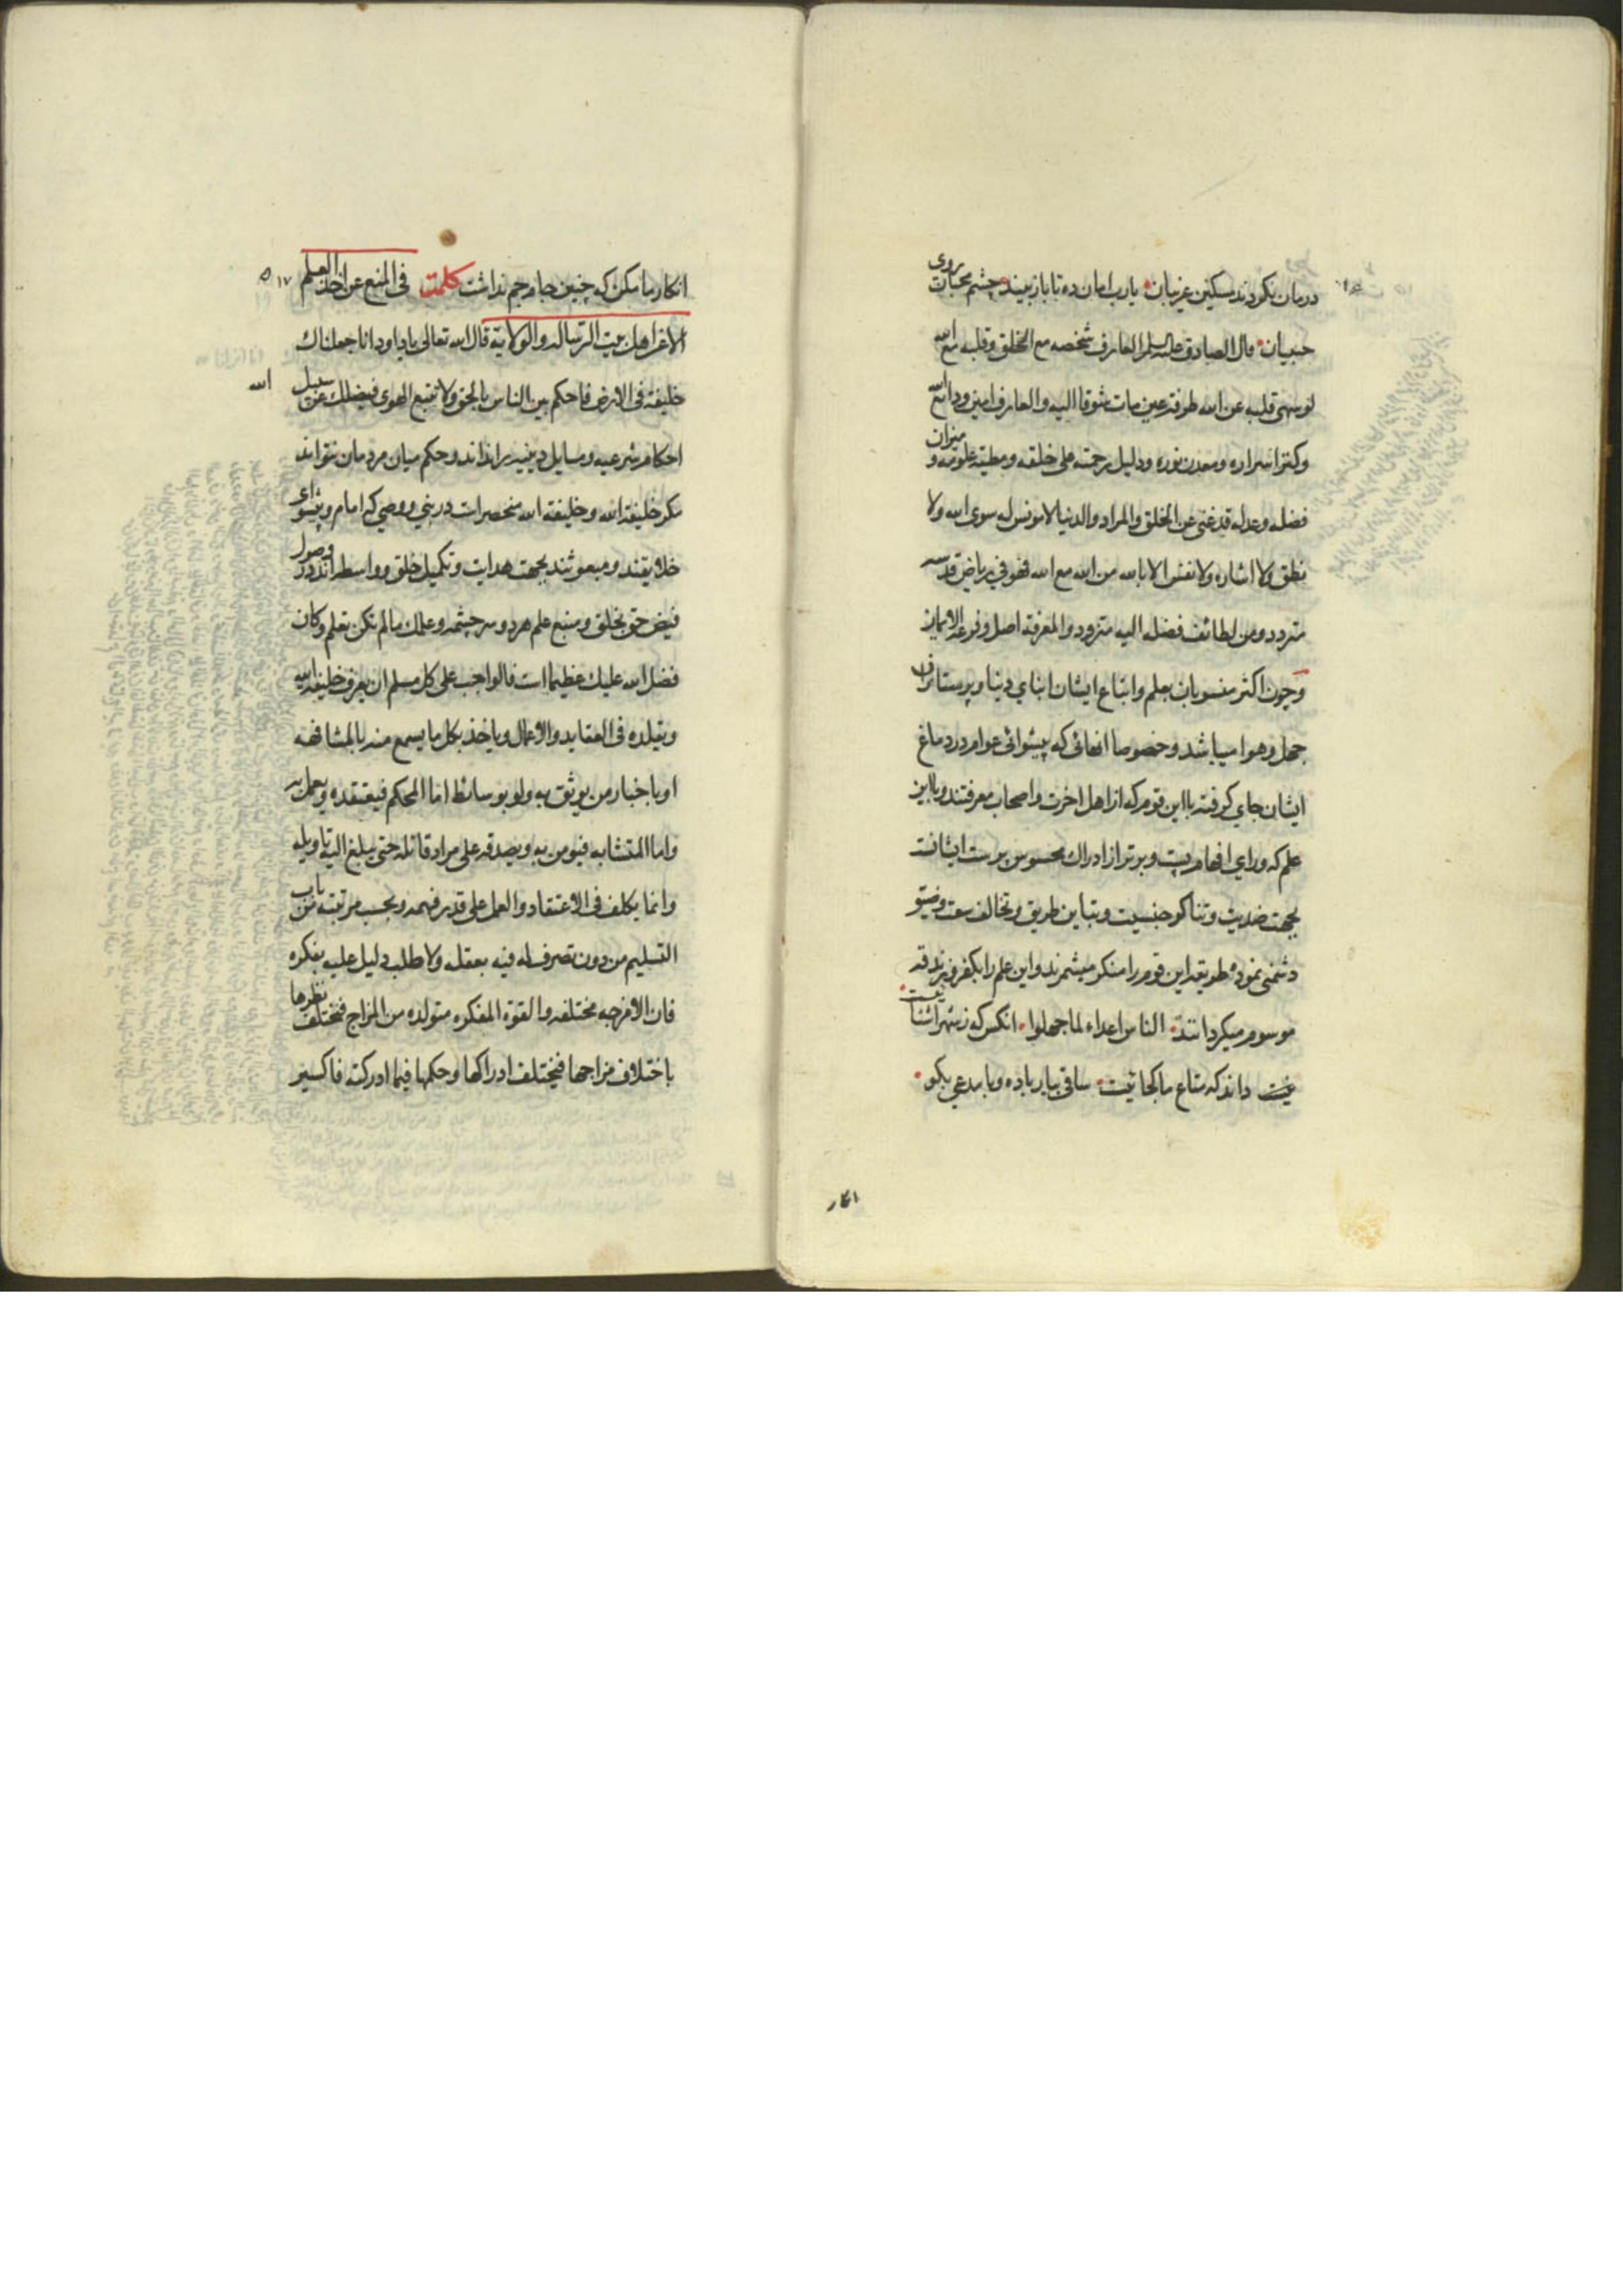 درمان نکردند مسکین غریبان یارب امان ده تا باز بیند چشم محبان روی
حبیبان قال الصادق علیه السلم العارف شخصه مع الخلق و قلبه مع الله
لو سهی قلبه عن الله طرفة عین مات شوقا الیه و العارف امین ودایع الله
و کنز اسراره و معدن نوره و دلیل رحمته علی خلقه و مطیة علومه و میزان
فضله و عدله قد غنی عن الخلق و المراد و الدنیا لا مونس له سوی الله و لا
نطق و لا اشاره و لا نفس الا بالله من الله مع الله فهو فی ریاض قدسه
متردد و من لطائف فضله الیه متزود و المعرفة اصل و فرعه الایمان
و چون اکثر منسوبان بعلم و اتباع ایشان ابنای دنیا و پرستاران
جهل و هوا میباشد و خصوصا انهائی که پیشوائی عوام در دماغ
ایشان جای کرفته با این قوم که از اهل اخرت و اصحاب معرفتند و با این
علم که ورای افهام پست و برتر از ادراک محسوس پرست ایشانست
بجهت ضدیت و تناکر جنسیت و تباین طریق و تخالف سعت و ضیق
دشمنی نموده طریقه این قوم را منکر میشمرند و این علم را بکفر و زندقه
موسوم میکردانند الناس اعداء لما جهلوا انکس که ز شهر اشنا
ئیست داند که متاع ما کجائیست ساقی بیار باده و با مدعی بکو
انکار
انکار ما مکن که چنین جام جم نداشت کلمت فی المنع عن اخذ العلم
الا عن اهل بیت الرساله و الولایة قال الله تعالی یا داود انا جعلناک
خلیفة فی الارض فاحکم بین الناس بالحق و لا تتبع الهوی فیضلک عن سبیل
الله
احکام شرعیه و مسایل دینیه را نداند و حکم میان مردمان نتواند
مکر خلیفة الله و خلیفة الله منحصر است در نبی و وصی که امام و پیشوای
خلایقند و مبعوثند بجهت هدایت و تکمیل خلق و واسطه اند در وصول
فیض حق بخلق و منبع علم هر دو سرچشمه و علمک مالم تکن تعلم و کان
فضل الله علیک عظیما است فالواجب علی کل مسلم ان یعرف خلیفة الله
و یقلده فی العقاید و الاعمال و یاخذ بکل ما یسمع منه بالمشافهه
او باخبار من یوثق به و لو بوسائط اما المحکم فیعتقده و یعمل به
و اما المتشابه فیومن به و یصدقه علی مراد قائله حتی یبلغ الیه تاویله
و انما یکلف فی الاعتقاد و العمل علی قدر فهمه و بحسب مرتبته من باب
التسلیم من دون تصرف له فیه بعقله و لا طلب دلیل علیه بفکره
فان الامزجه مختلفه و القوة المفکره متولده من المزاج فیختلف نظرها
باختلاف مزاجها فیختلف ادراکها و حکمها فیما ادرکته فاکسیر